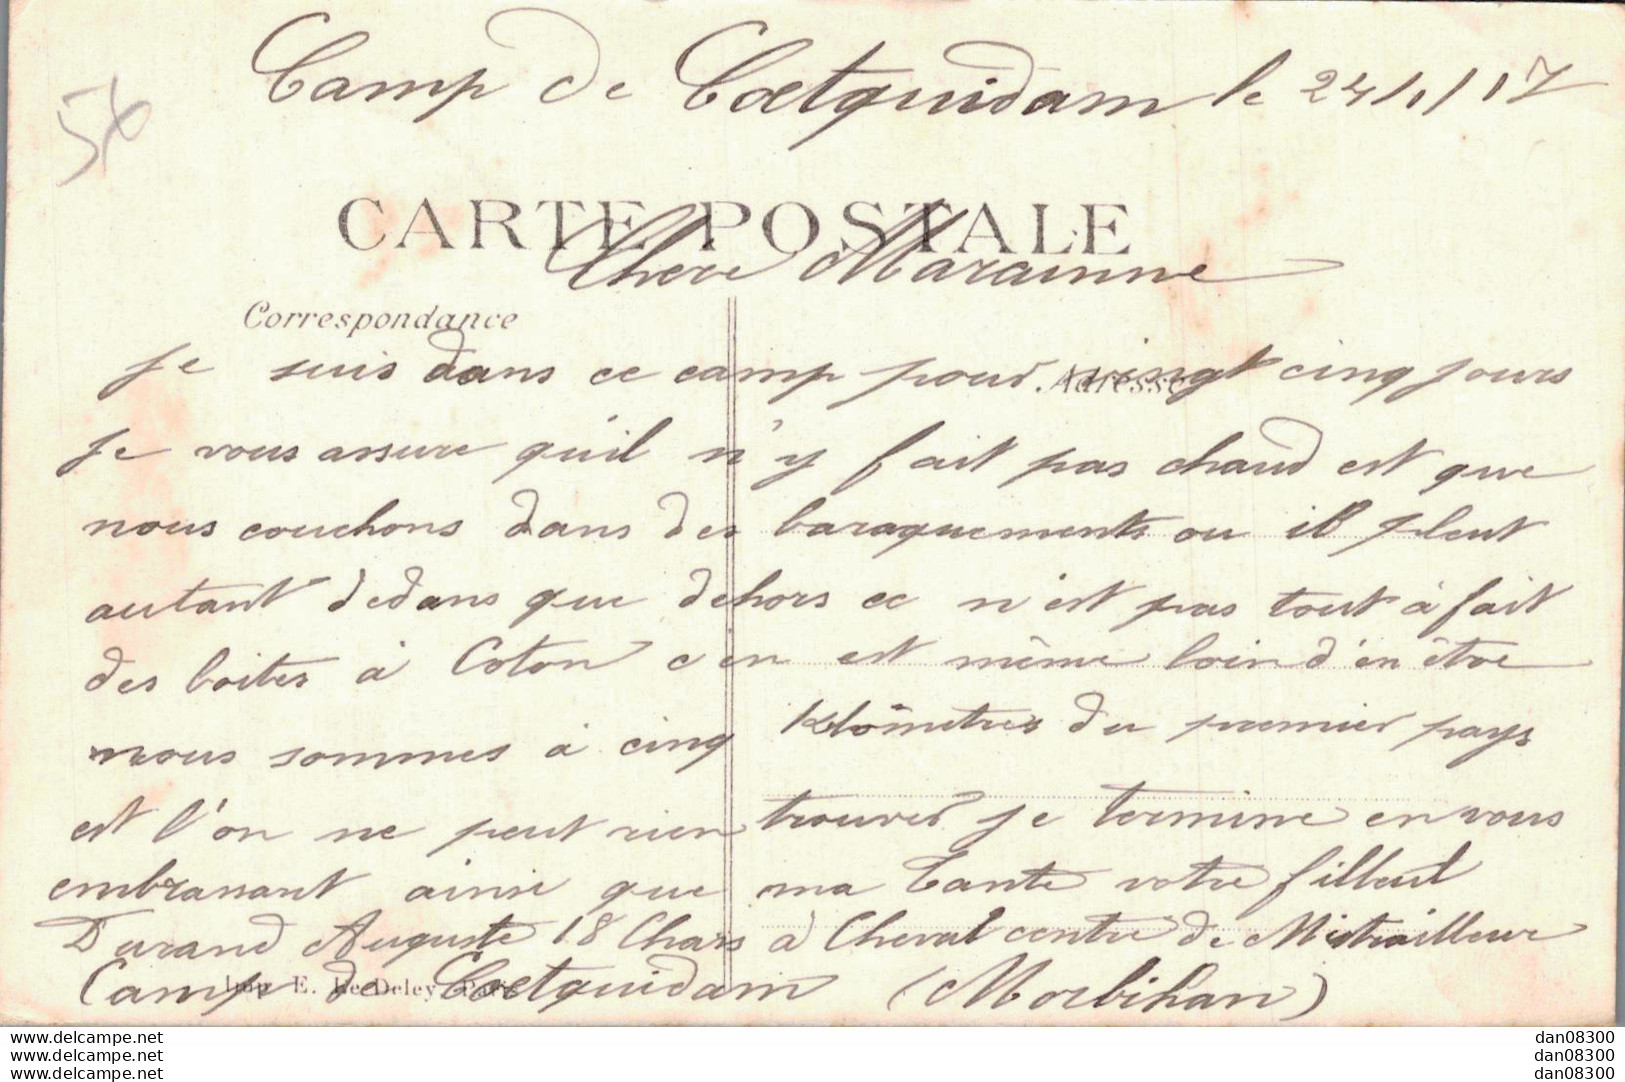 56
Camp de Coetquidam le 24/1/17
CARTE POSTALE
Chere Marainne
Correspondance
Adresse
je suis dans ce camp pour vingt cinq jours
je vous assure qu'il n'y fait pas chaud est que
nous couchons dans des baraquements ou il pleut
autant dedans que dehors ce n'est pas tout à fait
des boites à Coton c'en est même loin d'en être
nous sommes à cinq Kilômetres du premier pays
est l'on ne peut rien trouver je termine en vous
embrassant ainsi que ma Tante votre filleul
Durand Auguste 18 Chars à Cheval centre de Mitrailleur
Camp de Coetquidam (Morbihan)
Imp. E. Le Deley, Paris
www.delcampe.net
www.delcampe.net
www.delcampe.net
dan08300
dan08300
dan08300